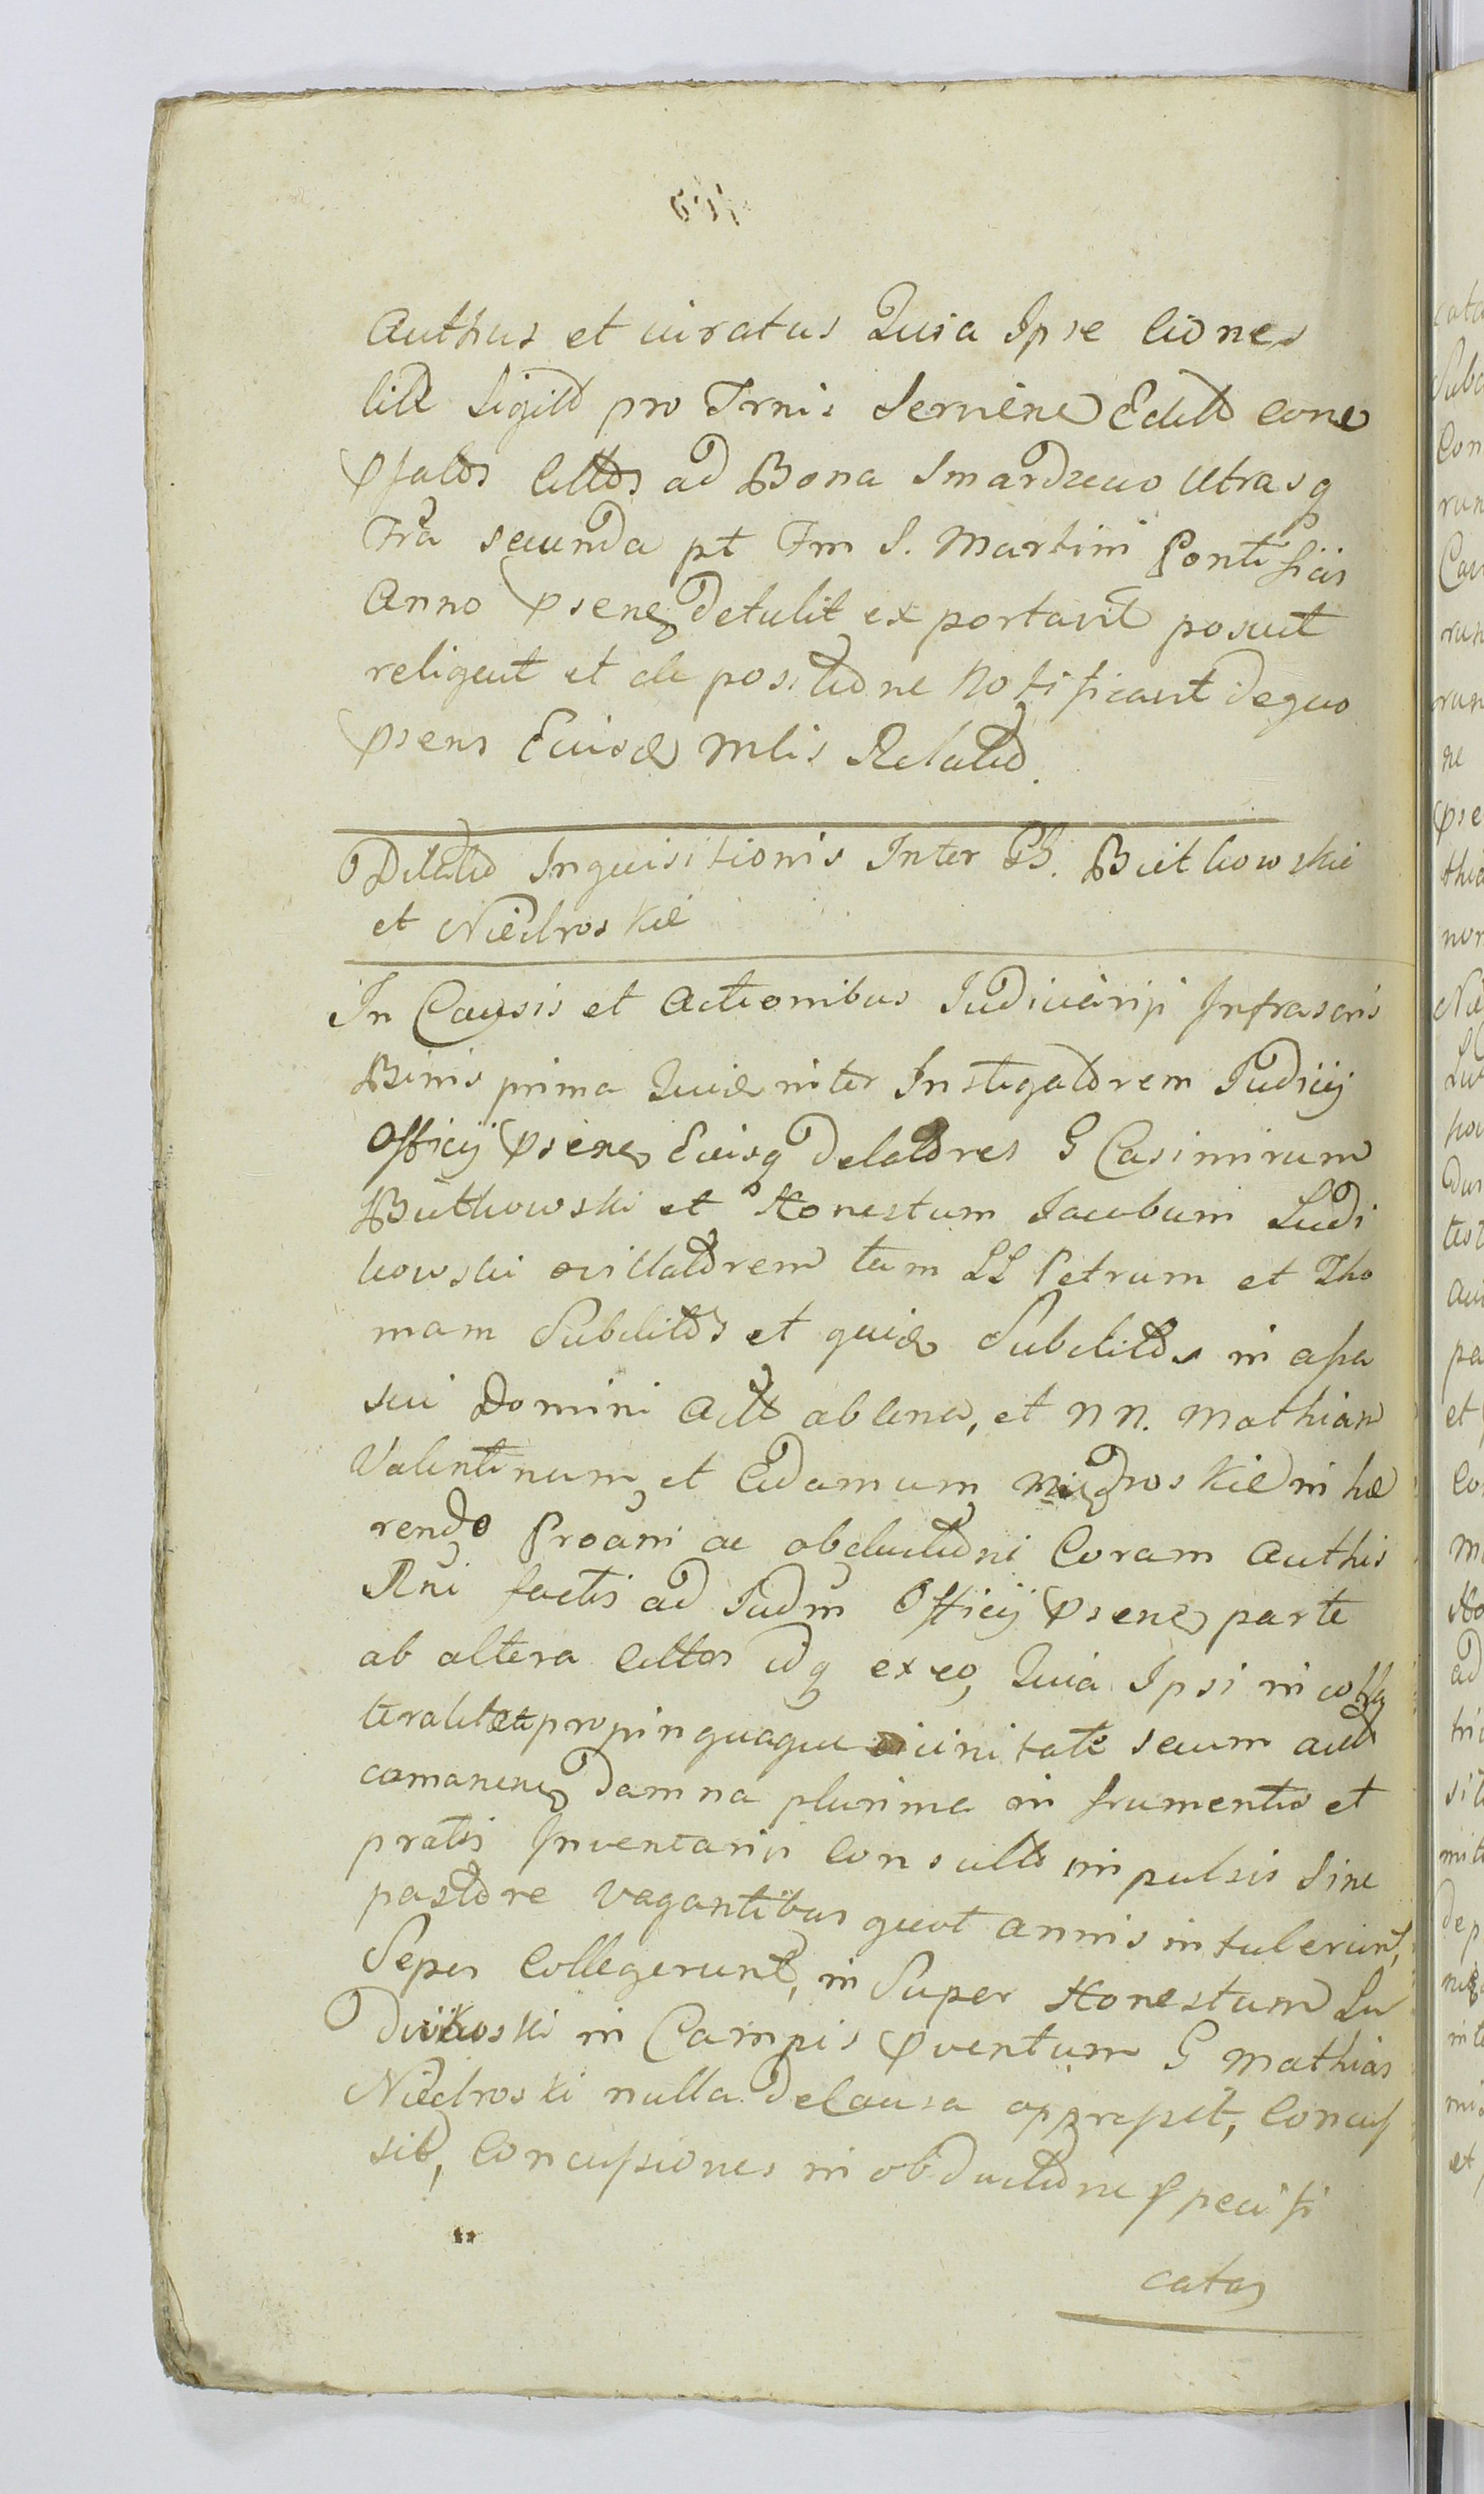 Authus et iuratus Quia Ipse Ciones
litt Sigilt pro Trnis Serviene Edilt cone
Psatos Cittos ad Bona Smardzewo Utrasq
Fra secunda pt Fm S. Martini Pontificis
Anno Psene detulit ex portavit posuit
religuit et de positione Notificavit de quo
Psens Eiusd Mlis Relatio.
Dilatio Inquisitionis Inter GG. Buthowskie
et Niedroskie
In Causis et Actionibus Iudiciariji Infrascris
Binis prima Quid inter Instigatorem Iudicij
Officij Psene Eiusq delatores G Casimirum
Buthowski et Honestum Iacobum Ludi
kowski ovillatorem tum LL Petrum et Tho
mam Subditos et quid Subditos in assa
sui Domini Act ab Una, et NN. Mathiam
Valentinum et Adamum Niedroskie in hæ
rendo Proani ac obductioni Coram Authis
Rni factis ad Iudm Officij Psene parte
ab altera Cittos idq ex eo, Quia Ipsi in colla
terali et propinquaque vicinitate secum aut
comanene damna plurima in frumentis et
pratis Inventarijs Consulto impulsis Sine
pastore vagantibus quot annis intulerunt,
Sepes Collegerunt, in Super Honestum Lu
dwikoski in Campis Pventum G Mathias
Niedroski nulla de Causa oppressit, Concus
sit, Concussiones in obductione Specifi
catas